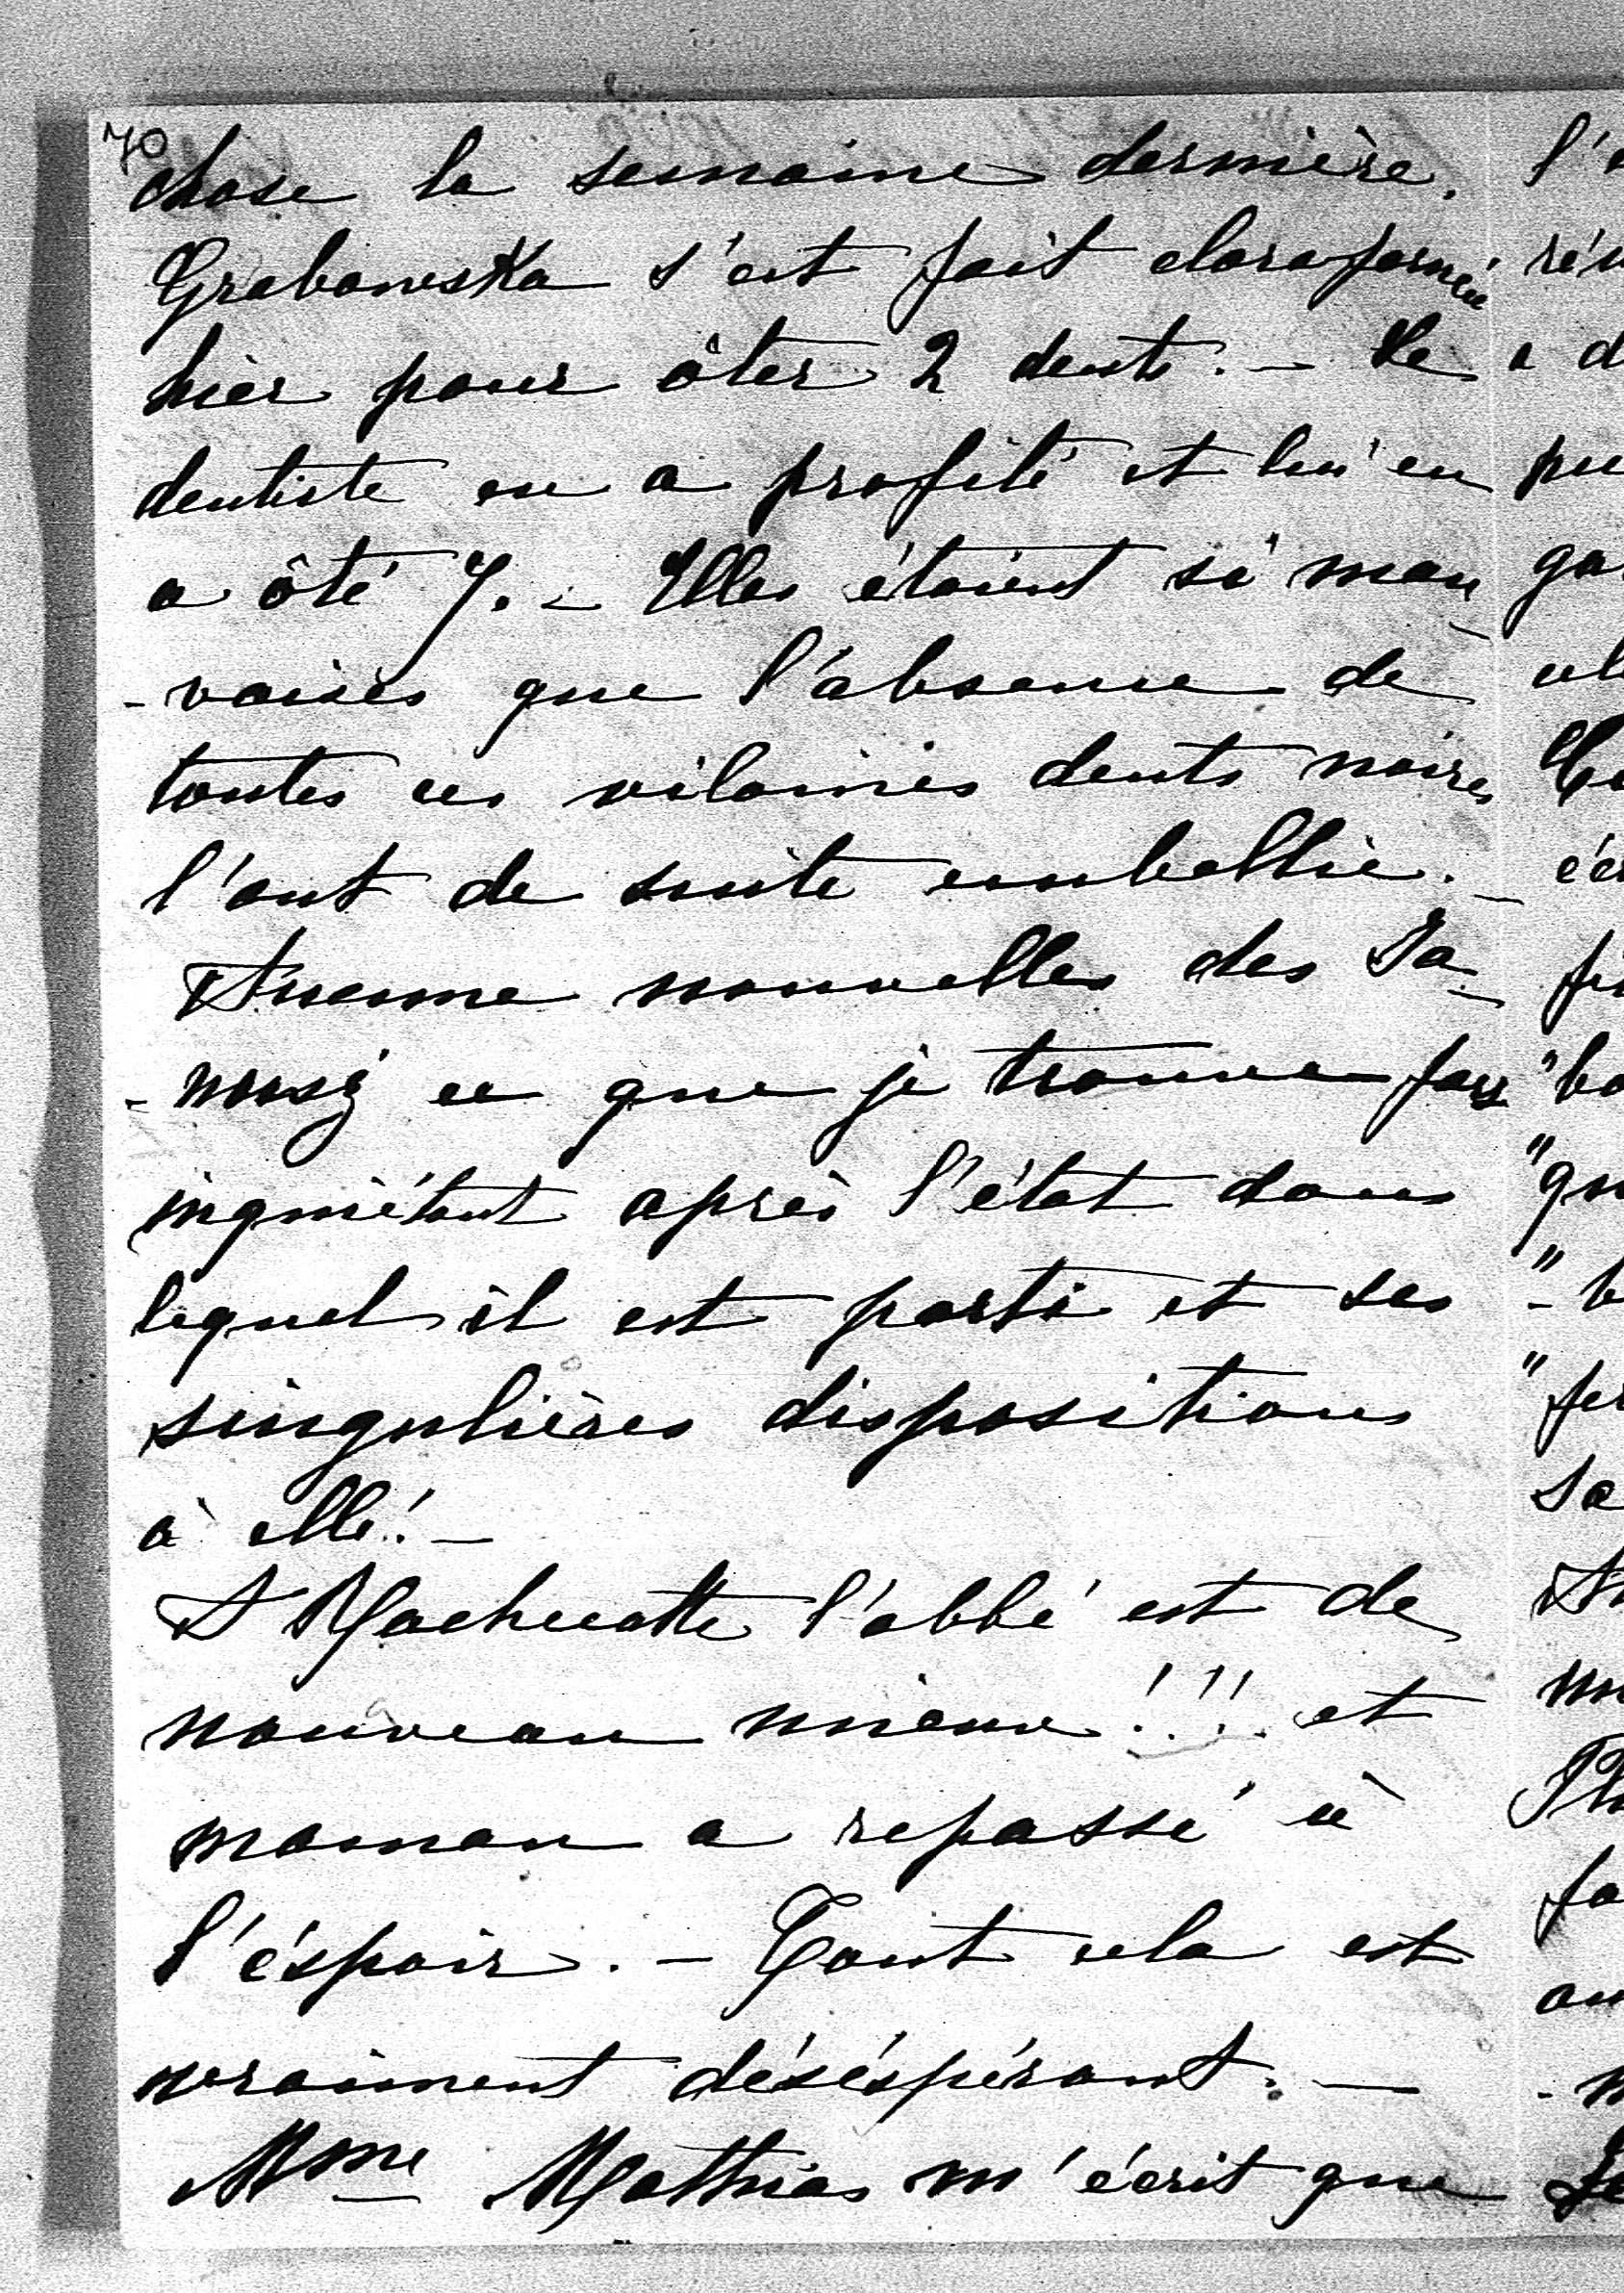 70
chose la semaine dernière.
Grabowska s'est fait cloroformée
hier pour ôter 2 dents. — Le
dentiste en a profité et lui en
a ôté 7. — Elles étaient si mau
-vaises que l'absence de
toutes ces vilaines dents noires
l'ont de suite embellie. —
Aucune nouvelles des Ja-
ce que je trouve fort
inquiétant après l'état dans
lequel il est parti et ses
singulières dispositions
à elle! —
A l'abbé est de
nouveau mieux!!! et
maman a repassé à
l'éspoir. — Tout cela est
vraiment déséspérant. —
Mme Mathias m'écrit que